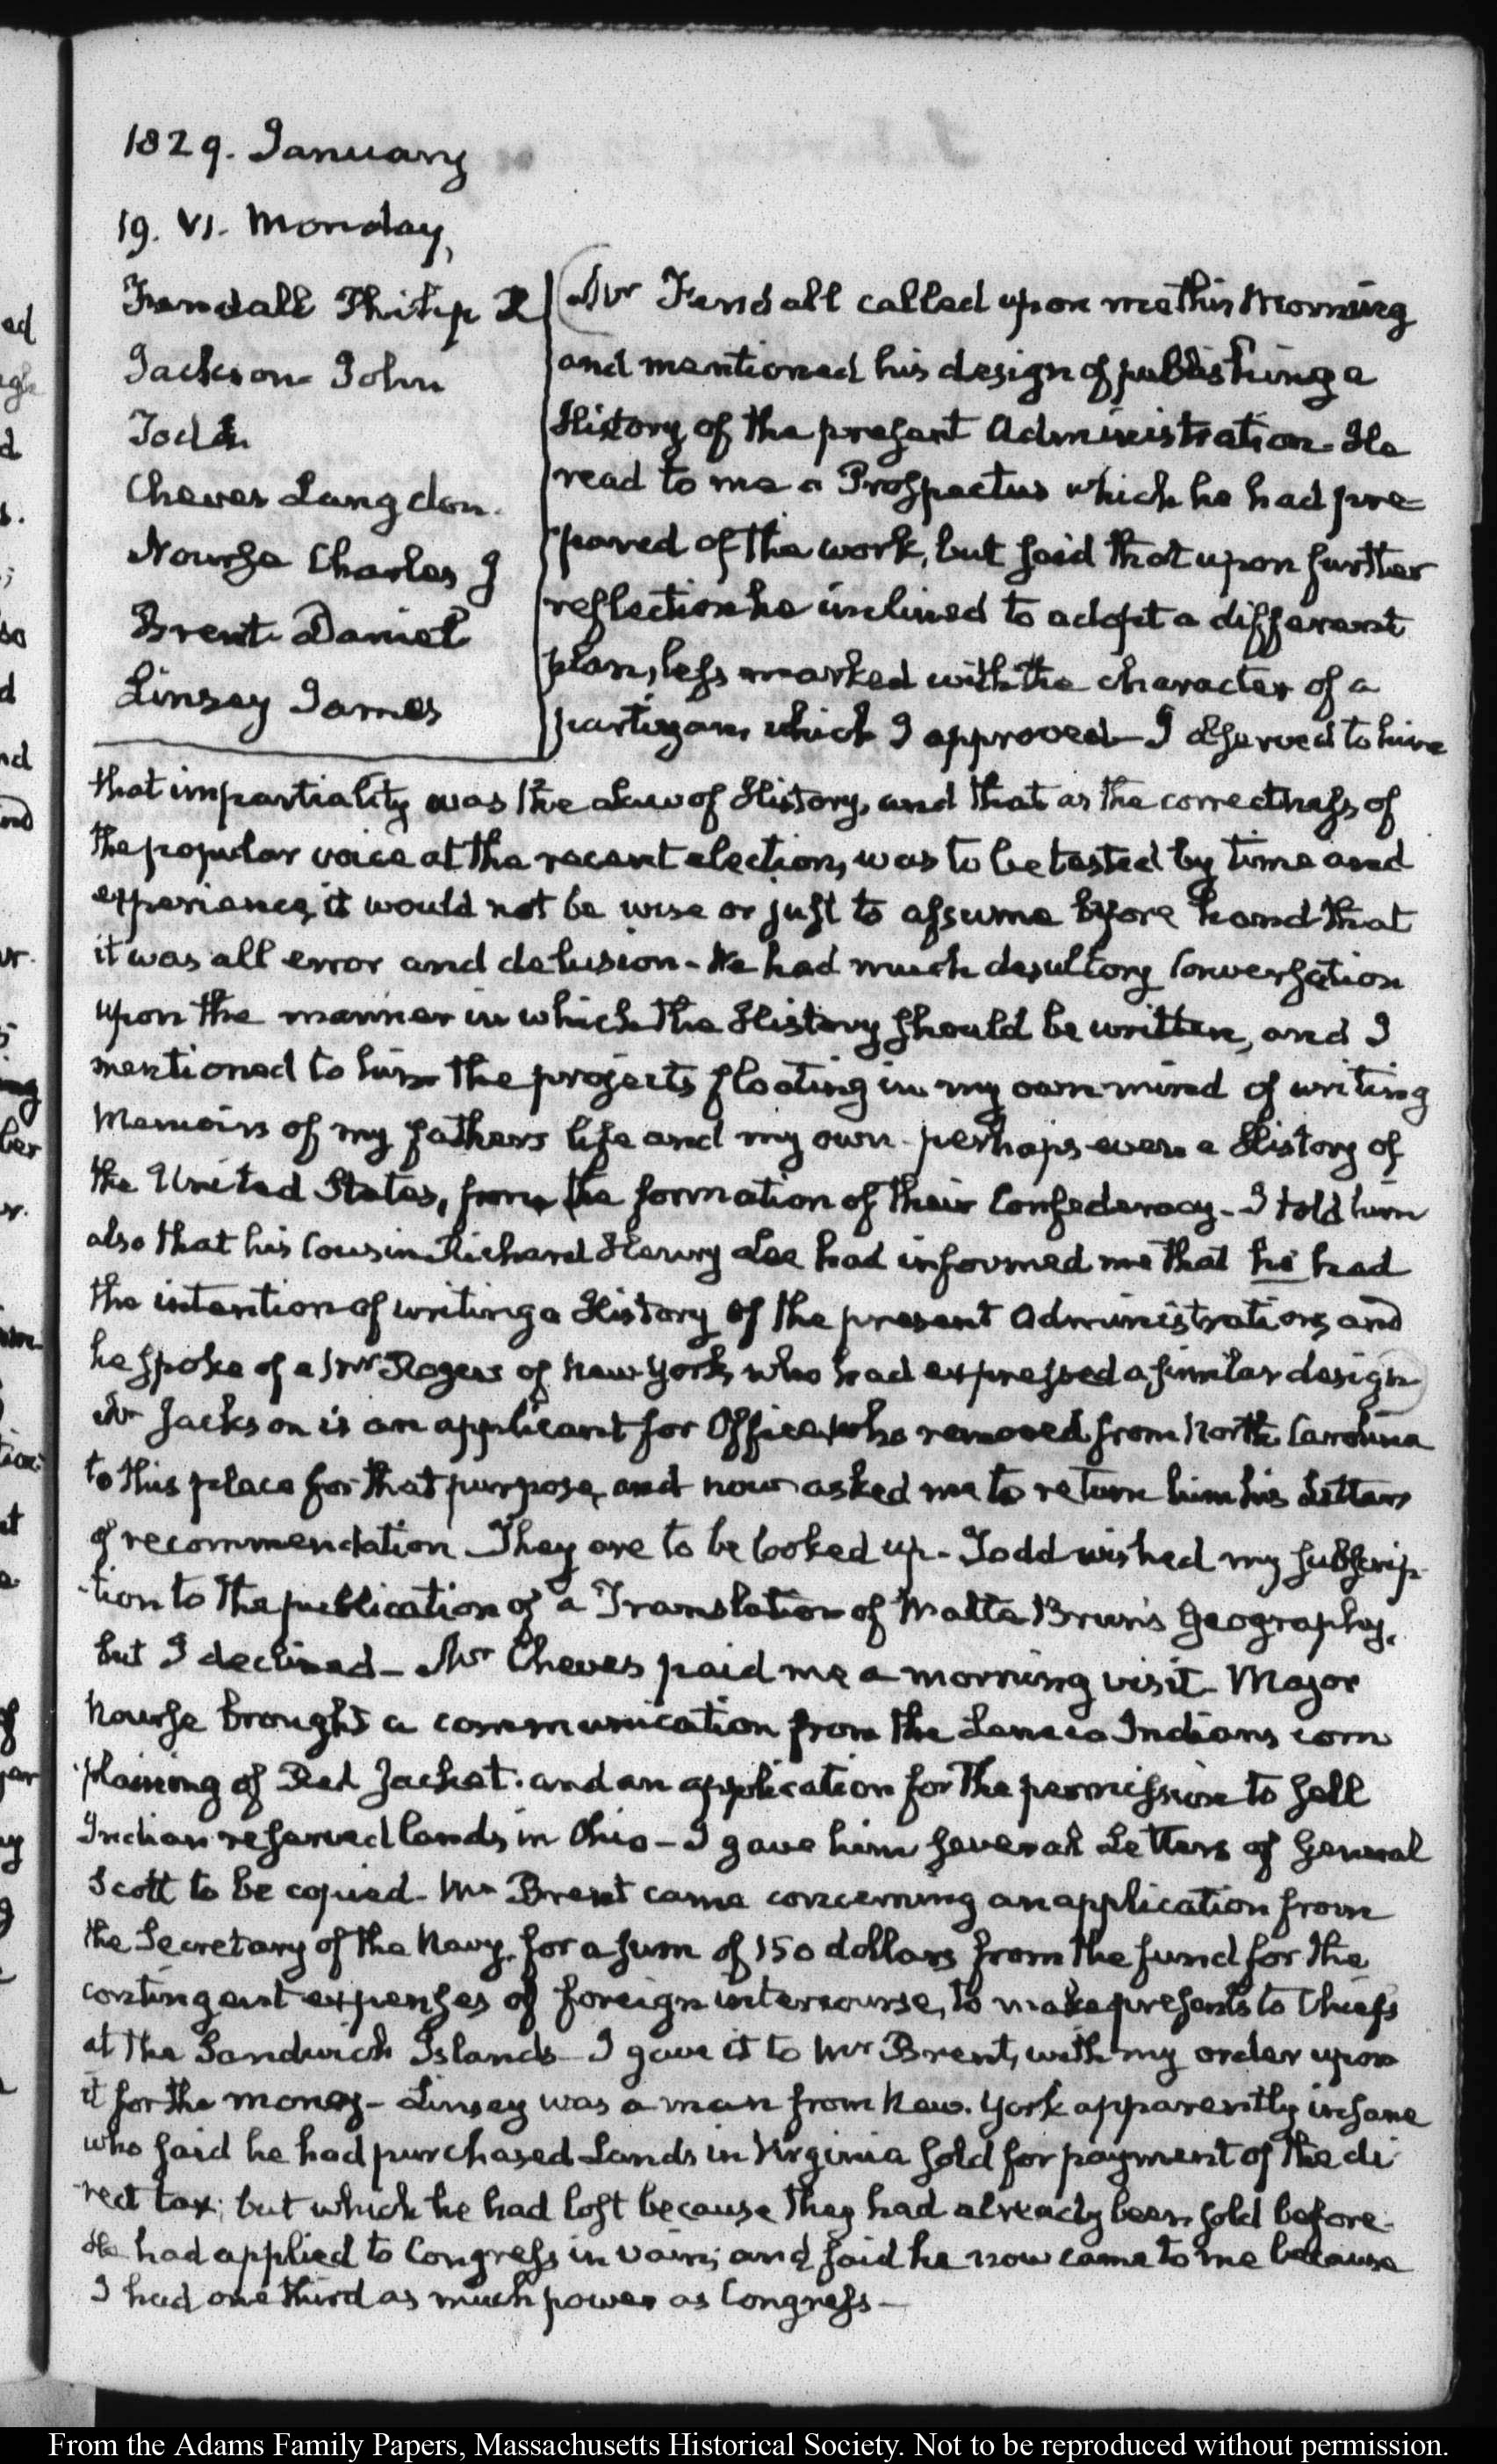 1829. January
19. VI. Monday,
Fendall Philip R
Jackson John
Todd
Cheves Langdon.
Nourse Charles J
Brent Daniel
Linsey James
Mr Fendall called upon me this Morning
and mentioned his design of publishing a
History of the present Administration. He
read to me a Prospectus which he had pre-
pared of the work, but said that upon further
reflection he inclined to adopt a different
plan, less marked with the character of a
partizan, which I approved— I observed to him
that impartiality was the Law of History, and that as the correctness of
the popular voice at the recent election, was to be tested by time and
experience, it would not be wise or just to assume before hand that
it was all error and delusion— We had much desultory Conversation
upon the manner in which the History should be written, and I
mentioned to him the projects floating in my own mind of writing
Memoirs of my fathers life and my own— perhaps even a History of
the United States, from the formation of their Confederacy— I told him
also that his Cousin Richard Henry Lee had informed me that he had
the intention of writing a History of the present Administration, and
he spoke of a Mr Rogers of New York, who had expressed a similar design
Mr Jackson is an applicant for Office, who removed from North Carolina
to this place for that purpose, and now asked me to return him his Letters
of recommendation— They are to be looked up— Todd wished my subscrip-
-tion to the publication of a Translation of Malte Brun's Geography,
but I declined— Mr Cheves paid me a morning visit. Major
Nourse brought a communication from the Seneca Indians com
-plaining of Red Jacket. and an application for the permission to sell
Indian reserved lands in Ohio— I gave him several Letters of General
Scott to be copied— Mr Brent came concerning an application from
the Secretary of the Navy, for a sum of 150 dollars from the fund for the
contingent expenses of foreign intercourse, to make presents to Chiefs
at the Sandwich Islands— I gave it to Mr Brent, with my order upon
it for the money— Linsey was a man from New-York apparently insane
who said he had purchased Lands in Virginia sold for payment of the di-
-rect tax; but which he had lost because they had already been sold before.
He had applied to Congress in vain; and said he now came to me because
I had one third as much power as Congress—
From the Adams Family Papers, Massachusetts Historical Society. Not to be reproduced without permission.